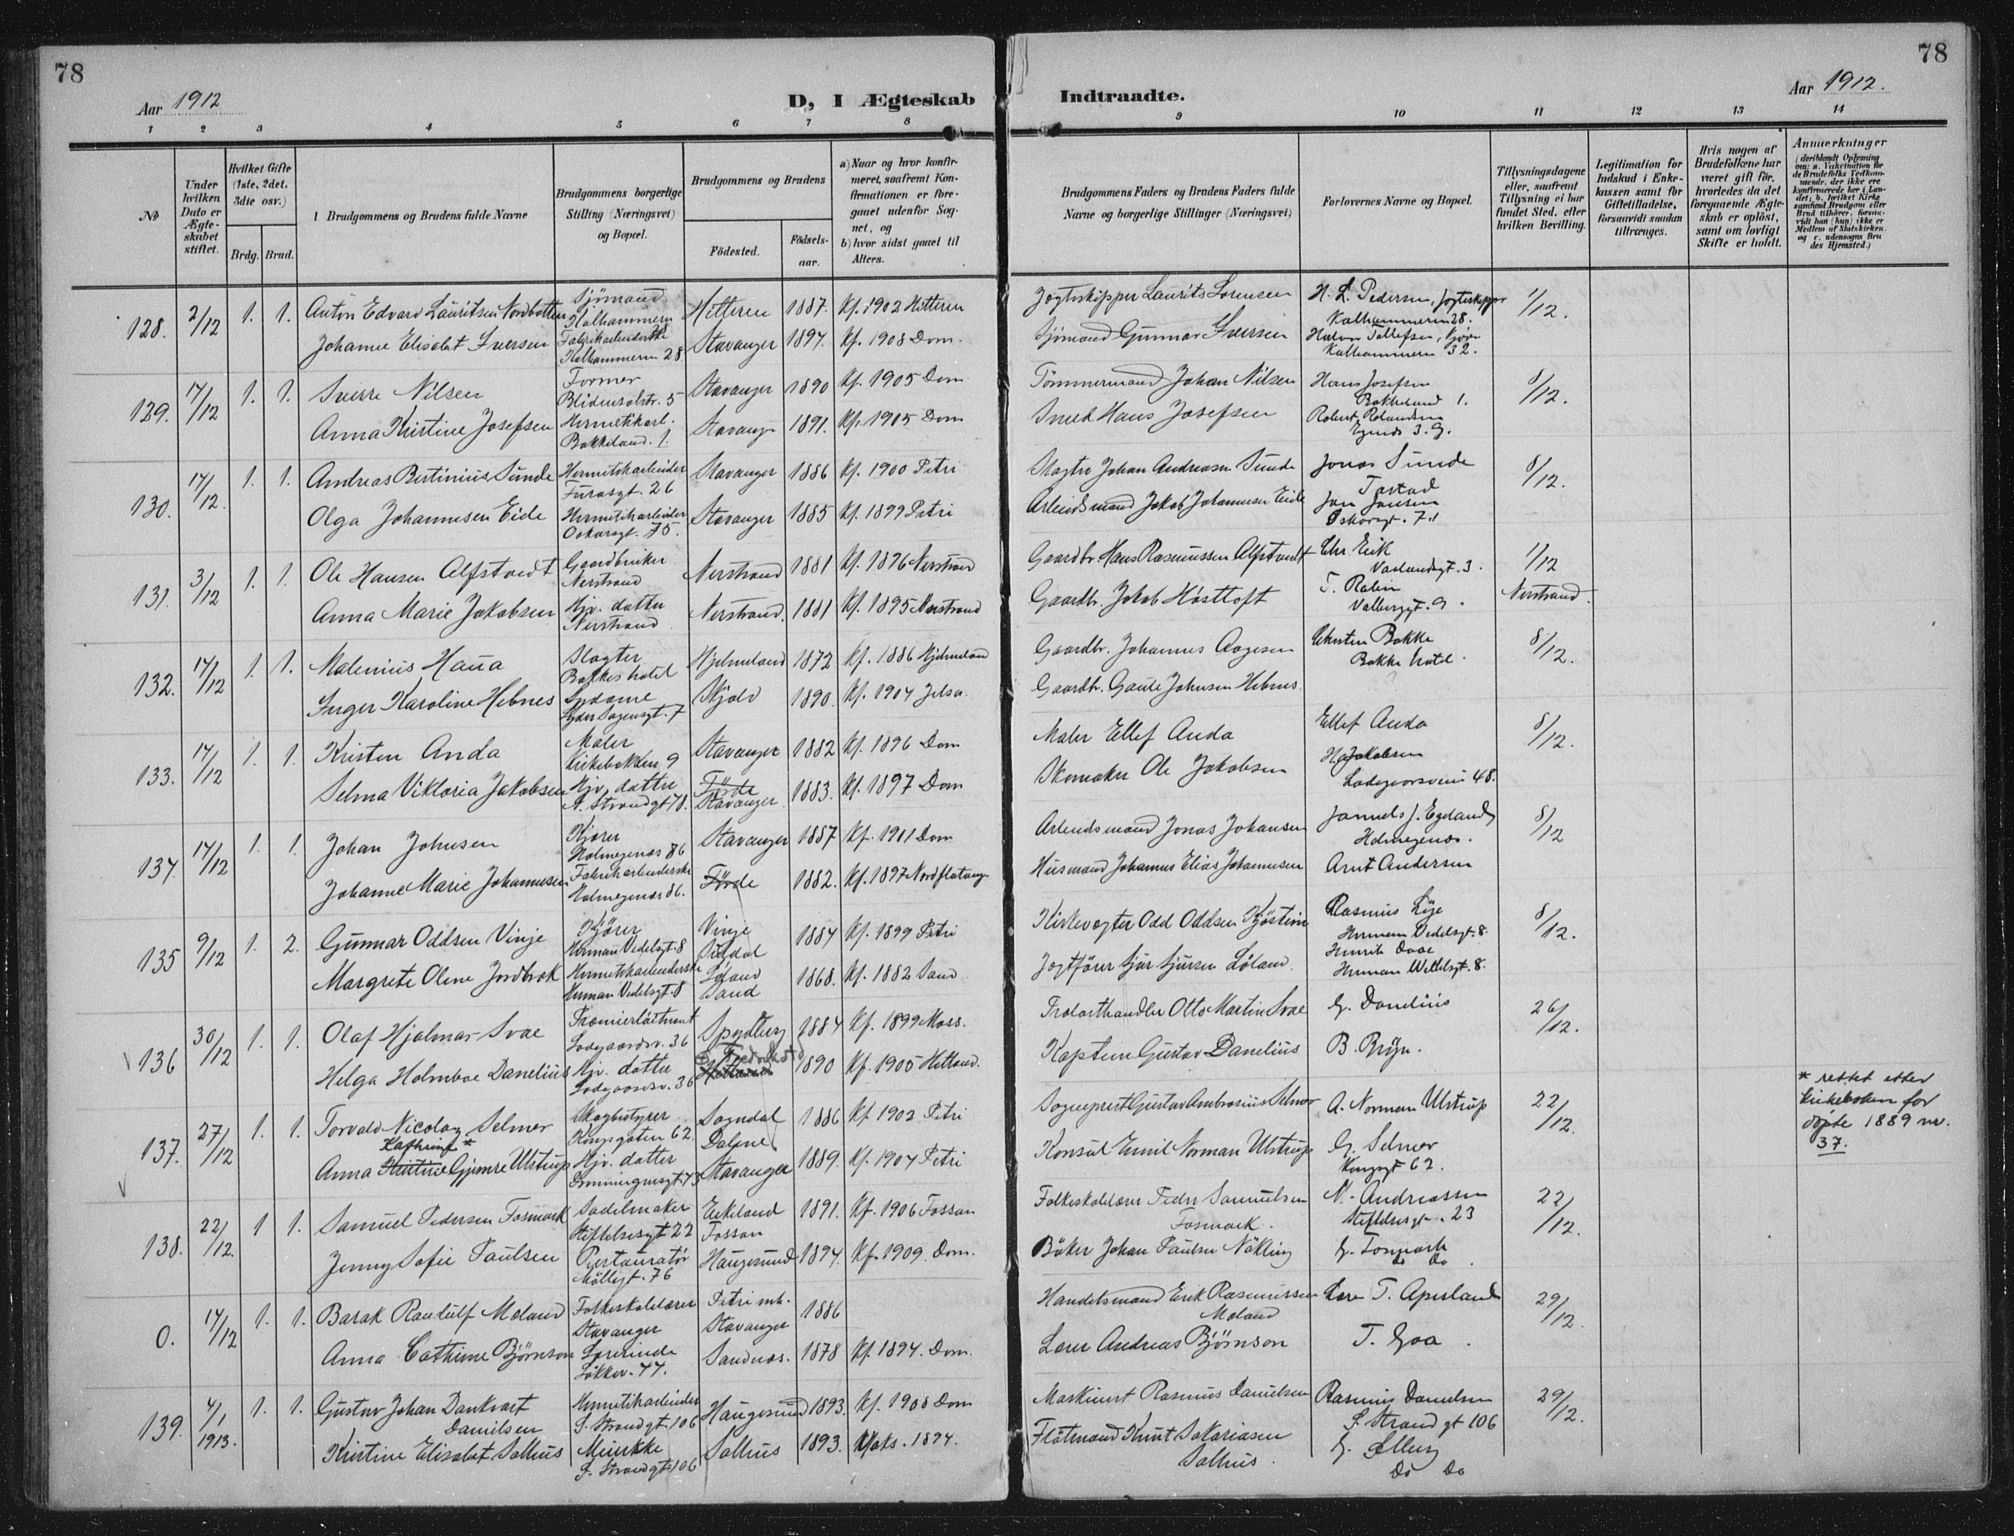 78
Aar 1912
D, I Ægteskab
1 2 3 4 5 6 7 8
No
Under hvilken Dato er Ægteskabet stiftet.
Hvilket Gifte (1ste, 2det, 3die osv.)
Brdg. Brud.
1 Brudgommens og Brudens fulde Navne
Brudgommens borgerlige Stilling (Næringsvei) og Bopæl.
Brudgommens og Brudens
Fødested.
Fødselsaar.
a) Naar og hvor konfirmeret, saafremt Konfirmationen er foregaaet udenfor Sognet, og
b) hvor sidst gaaet til Alters.
128. 2/12 1. 1. Anton Edvard Lauritsen Nordbotten Sjömand Kalhammeren Hitteren 1887. Kf. 1902 Hitteren
Johanne Elisabet Iversen Fabrikarbeiderske Kalhammeren 28 Stavanger 1894. Kf. 1908 Dom.
129. 17/12 1. 1. Sverre Nilsen Former Blidensolstr. 5 Stavanger 1890 Kf. 1905 Dom
Anna Kristine Josefsen Hermetikkarb. Bakkeland. 1 Stavanger 1891. Kf. 1905 Dom
130. 17/12 1. 1. Andreas Bertinius Sunde Hermetikarbeider Furasgt. 26 Stavanger 1886 Kf. 1900 Petri
Olga Johannesen Eide Hermetikarbeider Oskarsgt. 75. Stavanger 1885 Kf. 1899 Petri
131. 3/12 1. 1. Ole Hansen Alfstvedt Gaardbruker Nerstrand Nerstrand 1881 Kf. 1896 Nerstrand
Anna Marie Jakobsen Hjv. datter Nerstrand Nerstrand. 1881 Kf. 1895 Nerstrand
132. 17/12 1. 1. Malenius Haua Slagter Bakkes hotel Hjelmeland 1872 Kf. 1886 Hjelmeland
Inger Karoline Hebnes Sydame Lyder Sagensgt. 7 Skjold 1890. Kf. 1904 Jelsa
133. 17/12 1. 1. Kristen Anda Maler Kirkebakken 9 Stavanger 1882 Kf. 1896 Dom
Selma Viktoria Jakobsen Hjv. datter N. Strandgt 78. Förde Stavanger 1883. Kf. 1897 Dom
134. 17/12 1. 1. Johan Johnsen Kjører Holmegenæs 86 Stavanger 1887 Kf. 1901 Dom
Johanne Marie Johannesen Fabrikarbeiderske Holmegenæs 86. Förde 1882. Kf. 1897
135 9/12 1. 2. Gunnar Oddsen Vinje Kjører Herman Vedelsgt. 8 Vinje Suldal 1884 Kf. 1899 Petri
Margrete Olene Jordbrek Hermetikarbeiderske Herman Vedelsgt 8 Løland Sand 1868. Kf. 1882 Sand
136 30/12 1. 1. Olaf Hjalmar Svae Premierløitnant Ladegaardsv. 36 Spydberg 1884 Kf. 1899 Moss.
Helga Holmboe Danelius Hjv. datter Ladegaardsv. 36 Fredrikstad Hetland 1890 Kf. 1905 Hetland.
137. 27/12 1. 1. Torvald Nicolay Selmer Skogbestyrer Kongsgaten 62 Sogndal Dalene 1886 Kf. 1902 Petri
Kathrine*
Anna Kristine Gjemre Ulstrup Hjv. datter Dronningensgt 43 Stavanger 1889. Kf. 1904 Petri
138. 22/12. 1 1. Samuel Pedersen Fosmark Sadelmaker Stiftelsesgt 22 Eikeland Fossan 1891. Kf. 1906 Fossan
Jenny Sofie Paulsen Møllegt. 76 Haugesund 1894. Kf. 1909. Dom.
0. 17/12 1. 1. Barak Randulf Moland Folkeskolelærer Stavanger Petri mh. Stavanger 1886
Anna Cathrine Bjørnson Lærerinde Løkkev. 44. Sandnæs. 1878 Kf. 1894. Dom.
139. 4/1 1913. 1. 1. Gustav Johan Dankvart Danielsen Hermetikarbeider S. Strandgt 106 Haugesund 1893. Kf. 1908 Dom
Kristine Elisabet Salhus S. Strandgt 106 Salhus 1893. 1894.
78
Aar 1912.
Indtraadte.
9 10 11 12 13 14
Brudgommens Faders og Brudens Faders fulde Navne og borgerlige Stillinger (Næringsvei)
Forlovernes Navne og Bopæl.
Tillysningsdagene eller, saafremt Tillysning ei har fundet Sted, efter hvilken Bevilling.
Legitimation for Indskud i Enkekassen samt for Giftetilladelse, forsaavidt saadan tiltrænges.
Hvis nogen af Brudefolkene har været gift før, hvorledes da det foregaaende Ægteskab er opløst, samt om lovligt Skifte er holdt.
Anmerkninger
(deriblandt Oplysning om: a. Vakcination for de Brudefolks Vedkommende, der ikke ere konfirmerede her i Landet; b. hvilket Kirkesamfund Brudgom eller Brud tilhører, forsavidt han (hun) ikke er Medlem af Statskirken og c. udensogns Brudes Hjemsted.)
Jægteskipper Laurits Lorensen H. L. Pedersen, Jægteskipper Kalhammeren 28. 1/12.
Sjömand Gunnar Iversen Halvor Tollefsen, Kalhammeren 32.
Tömmermand Johan Nilsen Hans Josefsen Bakkeland 1. 8/12.
Smed Hans Josefsen Robert Rolandsen Egenæs 3. 9.
Slagter Johan Andreasen Sunde Jonas Sunde Tastad 8/12.
Arbeidsmand Jakob Johannesen Eide Jon Jansen Oskarsgt. 71
Gaardbr. Hans Rasmussen Alfstvedt Chr. Eik Vaalandsgt. 3. 1/12
Gaardbr. Jakob Høstloft T. Rabin Vallersgt. 9. Nerstrand.
Gaardbr. Johannes Aagesen Christen Bakke Bakke hotel. 8/12.
Gaardbr. Gaute Johnsen Hebnes.
Maler Ellef Anda Ellef Anda 8/12.
Skomaker Ole Jakobsen H. Jakobsen Ladegaarsveien 48.
Arbeidsmand Jonas Johansen J. Egeland Holmegenæs. 8/12
Husmand Johannes Elias Johannesen Arnt Andersen
Kirkevegter Odd Oddsen Kjøstein Rasmus Löge Herman Vedelsgt. 8. 8/12.
Jægtfører Sjur Sjursen Løland. Henrik Daae Herman Wedelsgt. 8.
Trælasthandler Otto Martin Svae G. Danelius 26/12.
Kaptein Gustav Danelius B. Bryn.
Sogneprest Gustav Ambrosius Selmer A. Norman Ulstrup 22/12.
Konsul Emil Norman Ulstrup G. Selmer Kongsgt 62.
* rettet etter kirkeboken for døpte 1889 nr. 37.
Folkeskolelærer Peder Samuelsen Fosmark. N. Andreassen Stiftelsesgt. 23 22/12.
Bäker Johan Paulsen Nökling G. Fosmark Do Do.
Handelsmand Erik Rasmussen Moland Lære T. Apeland 29/12.
Lærer Andreas Bjørnson T. Goa.
Maskinist Rasmus Danielsen Rasmus Danielsen S. Strandgt 106 29/12.
Flötmand Knut Sakariasen Salhus. G. Do Do